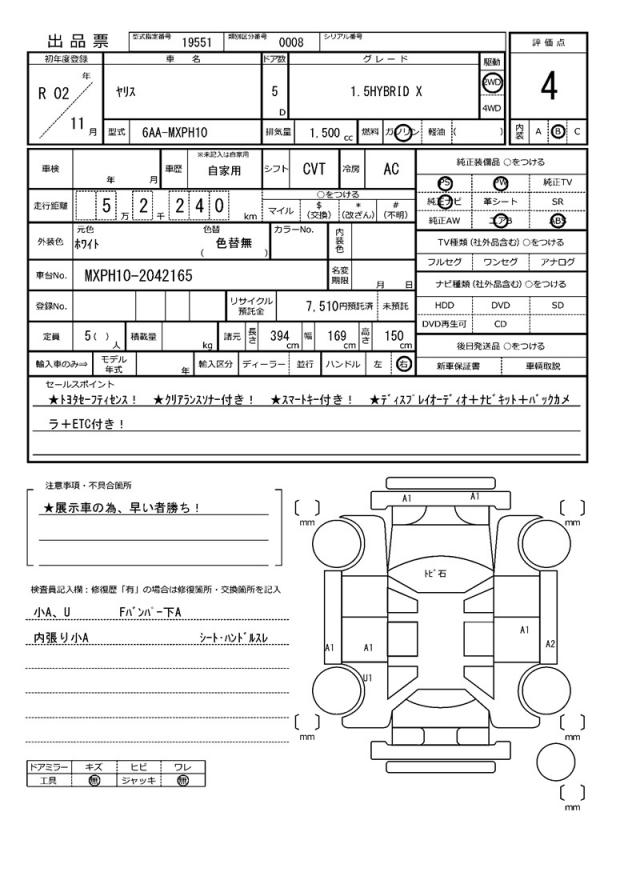 出品票 型式指定番号 19551 類別区分番号 0008 シリアル番号
評価点
4
内装 A B C
初年度登録 車名 ドア数 グレード 駆動
R 02 年 11 月
ヤリス 5 D 1.5HYBRID X 2WD 4WD
型式 6AA-MXPH10 排気量 1.500 cc 燃料 ガソリン 軽油 ( )
車検 年 月 車歴 ※未記入は自家用 自家用 シフト CVT 冷房 AC
走行距離 5 万 2 千 2 4 0 km
○をつける
マイル $ (交換) * (改ざん) # (不明)
外装色 元色 ホワイト 色替 色替無 ( ) カラーNo. 内装色
車台No. MXPH10-2042165 名変期限 月 日
登録No. リサイクル預託金 7,510円預託済 未預託
定員 5( ) 人 積載量 kg 諸元 長さ 394 cm 幅 169 cm 高さ 150 cm
輸入車のみ⇒ モデル年式 年 輸入区分 ディーラー 並行 ハンドル 左 右
純正装備品 ○をつける
PS PW 純正TV
純正ナビ 革シート SR
純正AW エアB ABS
TV種類 (社外品含む) ○をつける
フルセグ ワンセグ アナログ
ナビ種類 (社外品含む) ○をつける
HDD DVD SD
DVD再生可 CD
後日発送品 ○をつける
新車保証書 車輌取説
セールスポイント
★トヨタセーフティセンス! ★クリアランスソナー付き! ★スマートキー付き! ★ディスプレイオーディオ+ナビキット+バックカメ
ラ+ETC付き!
注意事項・不具合箇所
★展示車の為、早い者勝ち!
検査員記入欄:修復歴「有」の場合は修復箇所・交換箇所を記入
小A、U Fバンパー下A
内張り小A シート・ハンドルスレ
ドアミラー キズ ヒビ ワレ
工具 無 ジャッキ 無
A1 A1
[ ] mm
[ ] mm
トビ石
A1 A1 A1 A2
U1
[ ] mm
[ ] mm
[ ] mm